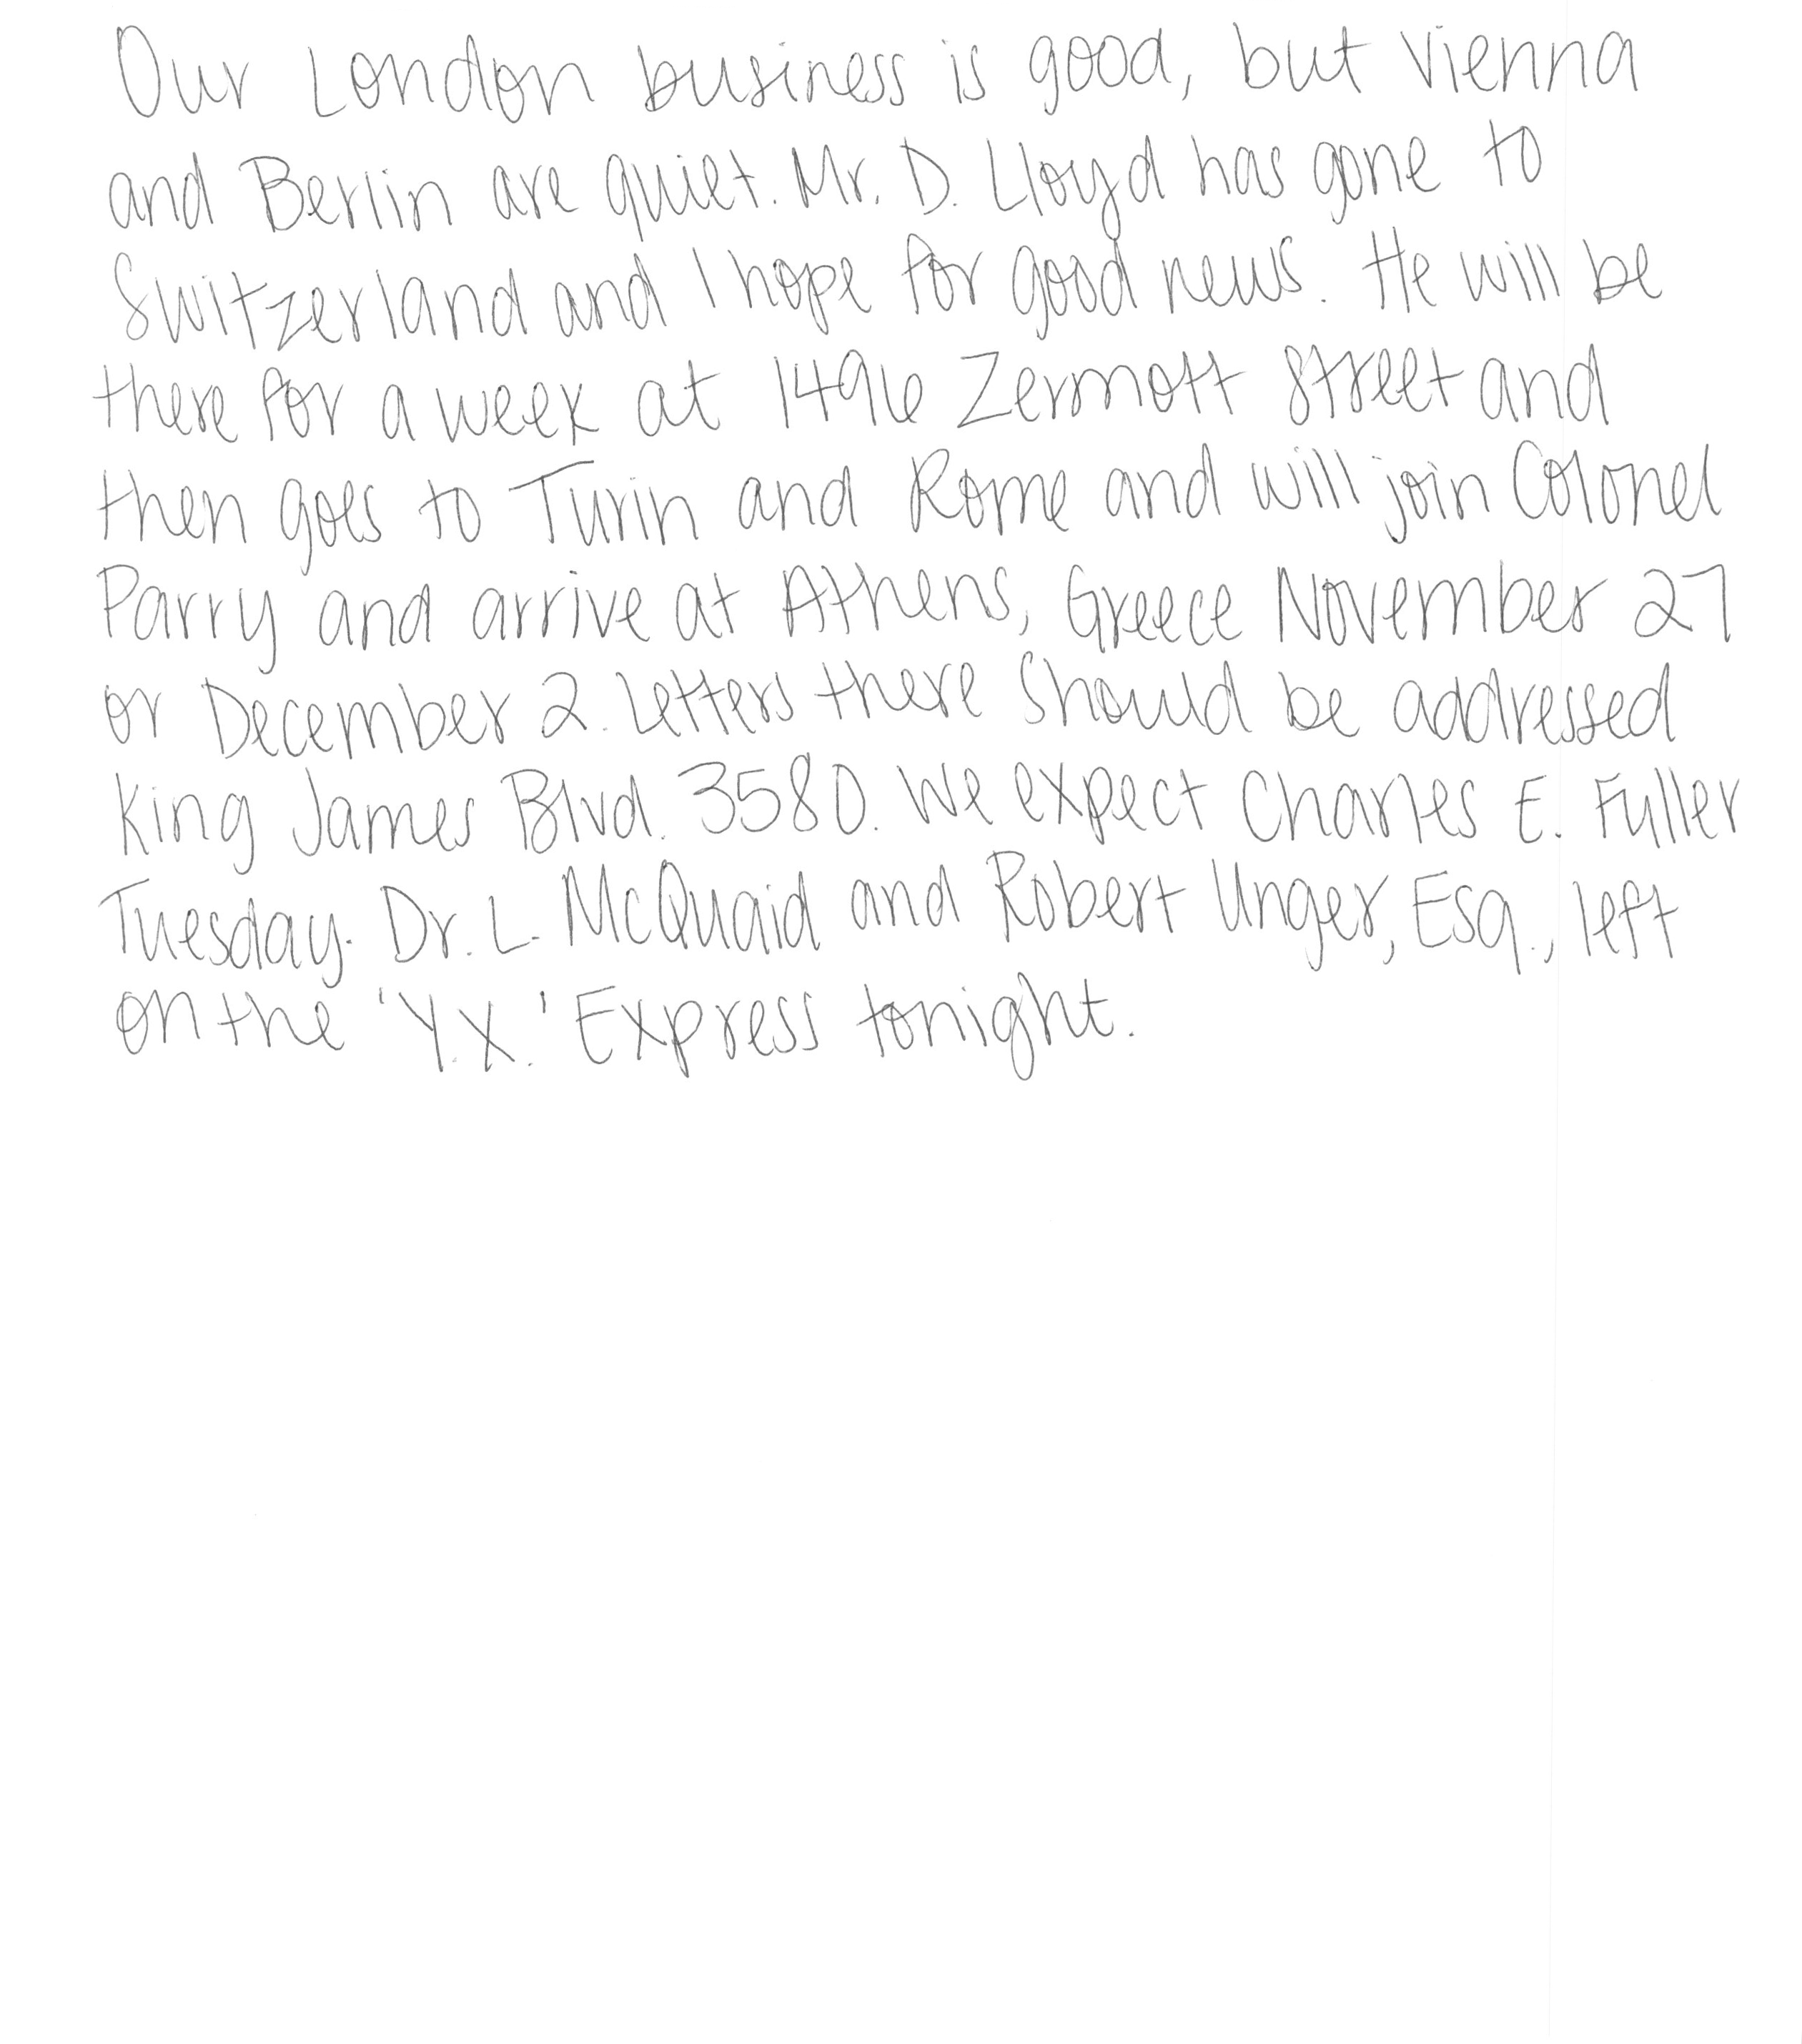 Our London business is good, but Vienna
and Berlin are quiet. Mr. D. Lloyd has gone to
Switzerland and I hope for good news. He will be
there for a week at 1496 Zermott Street and
then goes to Turin and Rome and will join Colonel
Parry and arrive at Athens, Greece November 27
or December 2. Letters there should be addressed
King James Blvd. 3580. We expect Charles E. Fuller
Tuesday. Dr. L. McQuaid and Robert Unger, Esq., left
on the 'Y.X.' Express tonight.